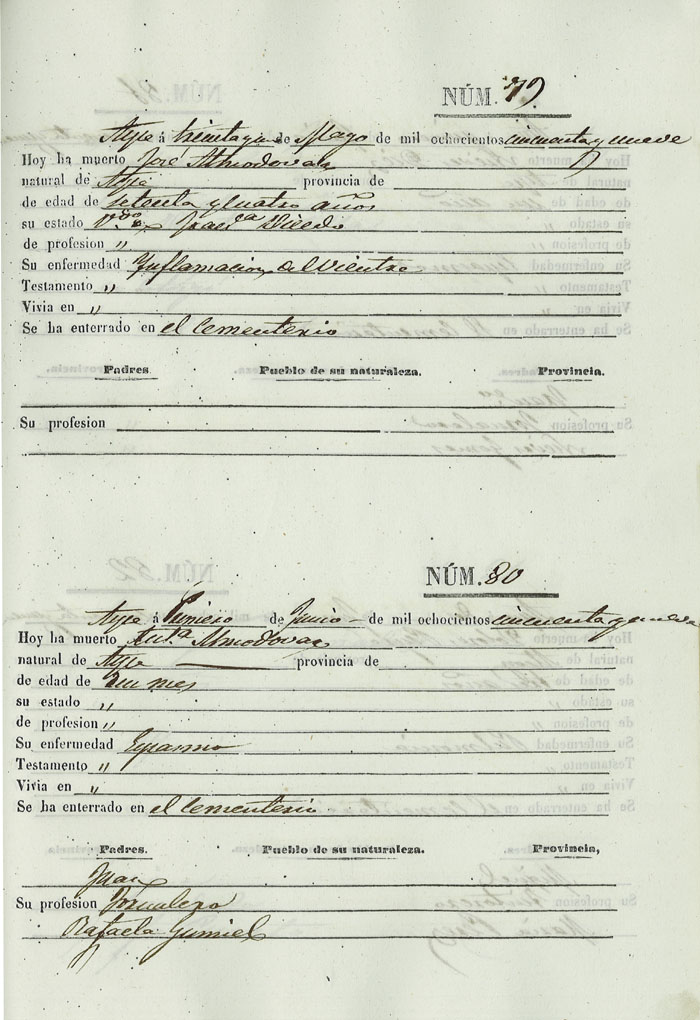 NÚM. 79.
Aspe á treinta y un de Mayo de mil ochocientos cincuenta y nueve
Hoy ha muerto José Almodovar
natural de Aspe provincia de
de edad de setenta y cuatro años
su estado V.do de Fran.ca
de profesion "
Su enfermedad Inflamacion del Vientre
Testamento "
Vivia en "
Se ha enterrado en el Cementerio
Padres. Pueblo de su naturaleza. Provincia.
Su profesion
NÚM. 80
Aspe á Primero de Junio de mil ochocientos cincuenta y nueve
Hoy ha muerto Ant.a Almodovar
natural de Aspe provincia de
de edad de un mes
su estado "
de profesion "
Su enfermedad Espasmo
Testamento "
Vivia en "
Se ha enterrado en el Cementerio
Padres. Pueblo de su naturaleza. Provincia,
Juan
Su profesion Jornalero
Rafaela Gumiel